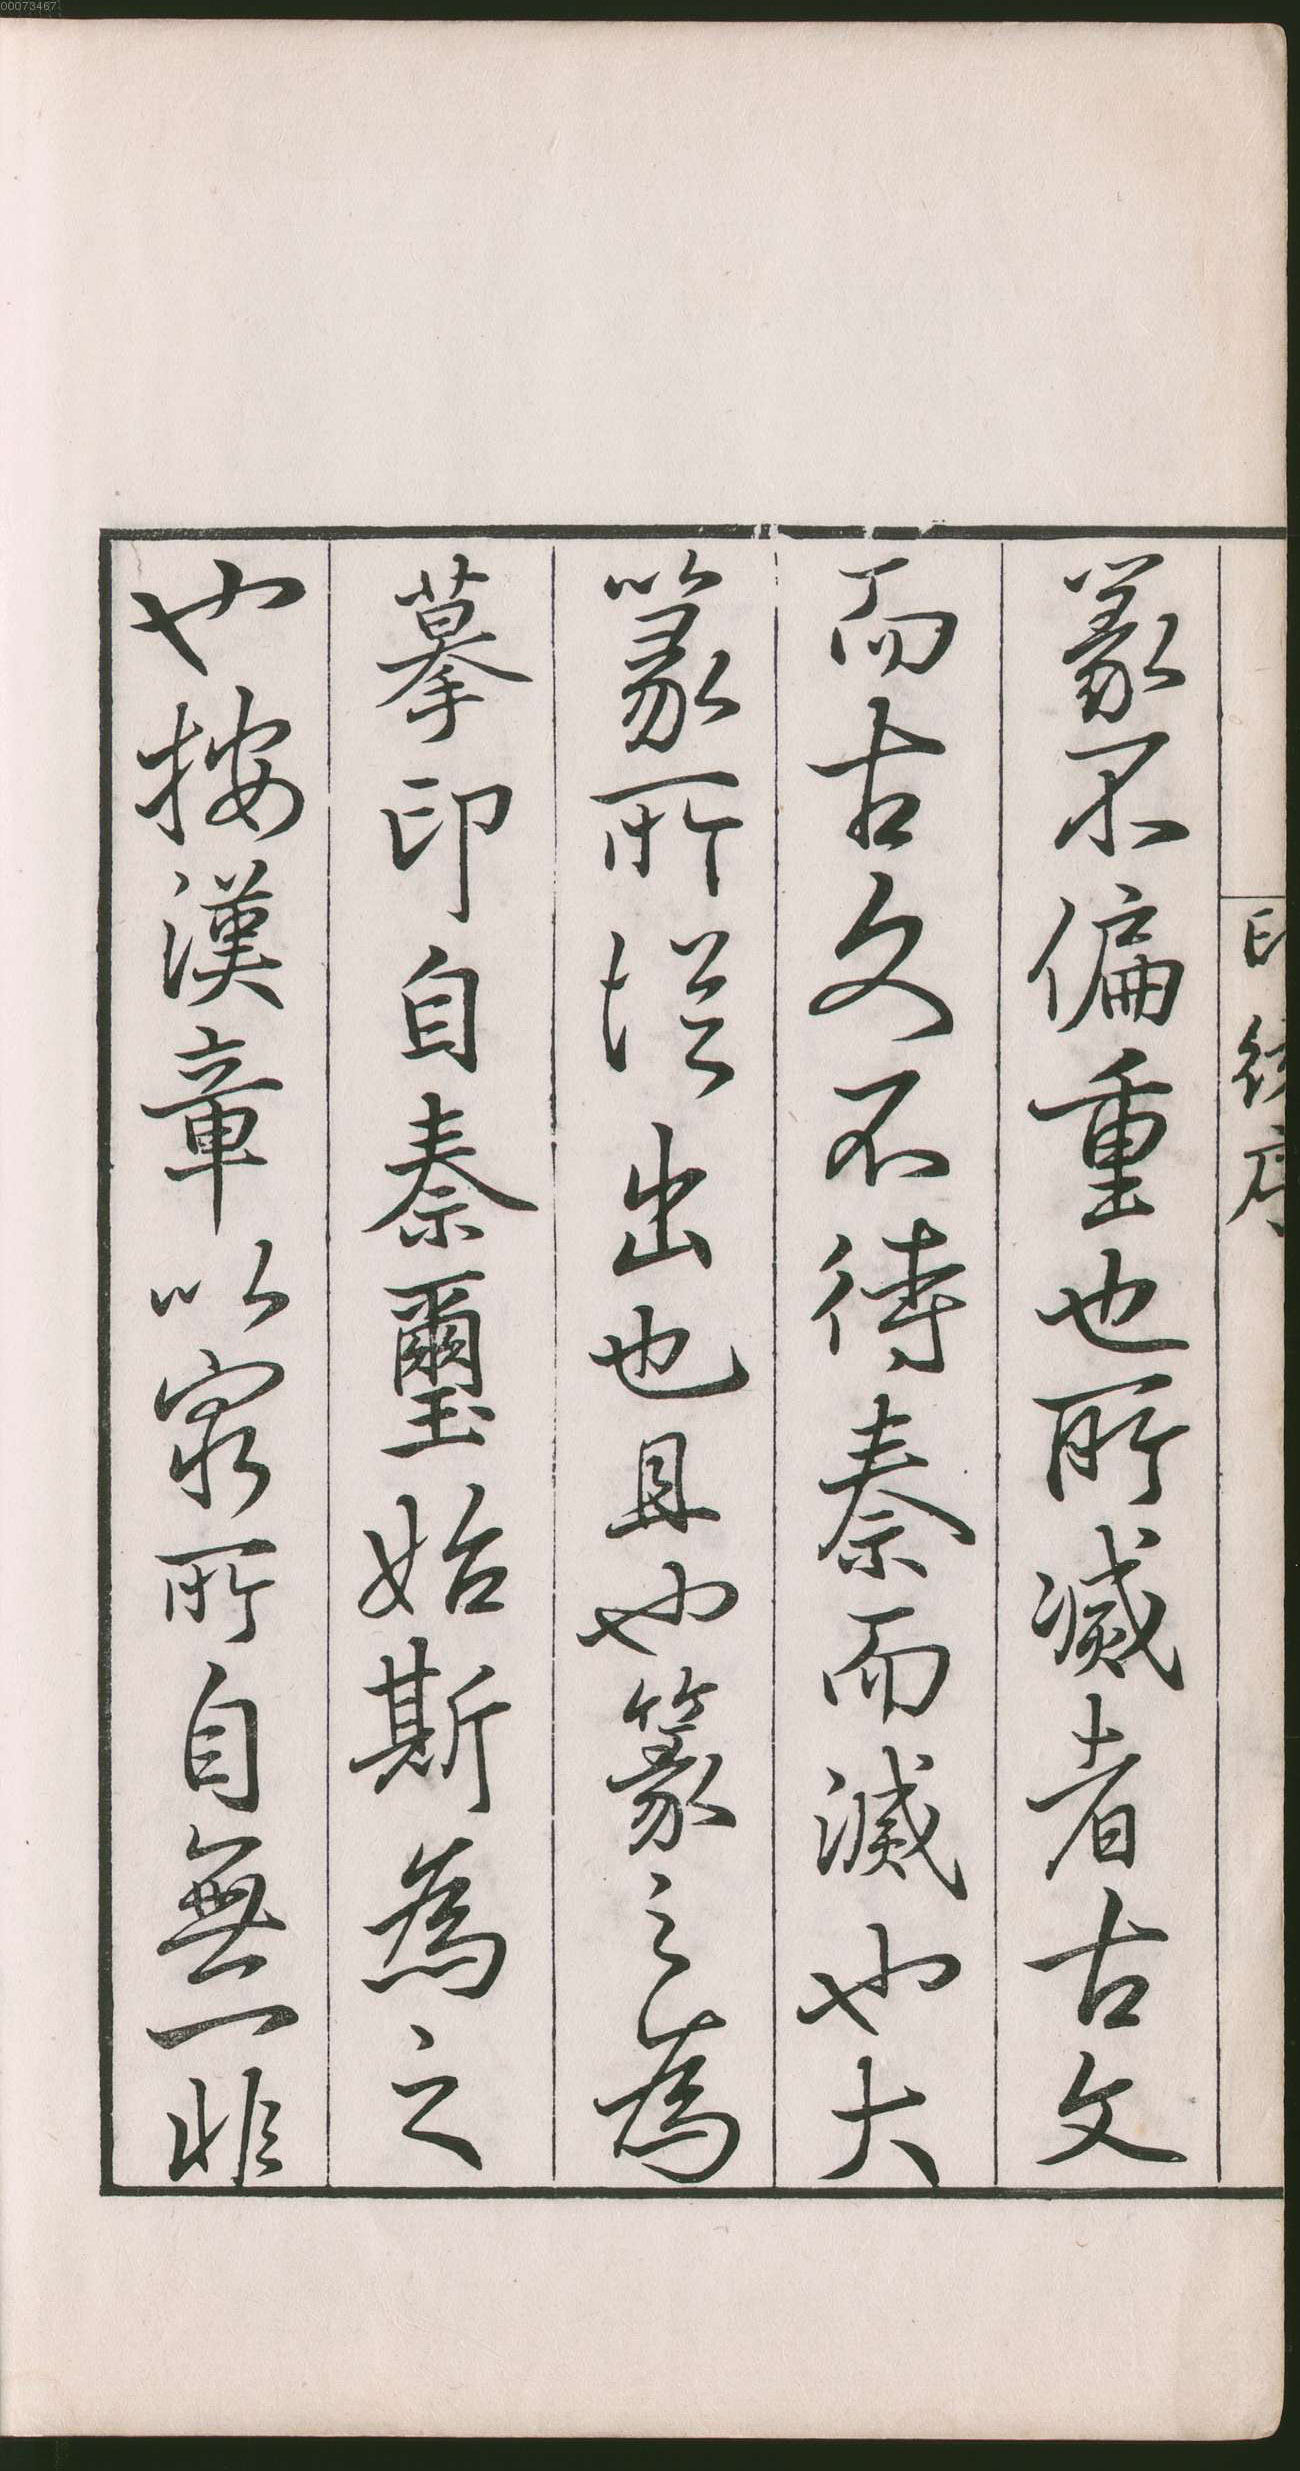 00073467
印
序
篆不偏重也所滅者古文
而古文不待秦而滅也大
篆所從出也且也篆之為
摹印自秦璽始斯為之
也按漢章以家所自無一非